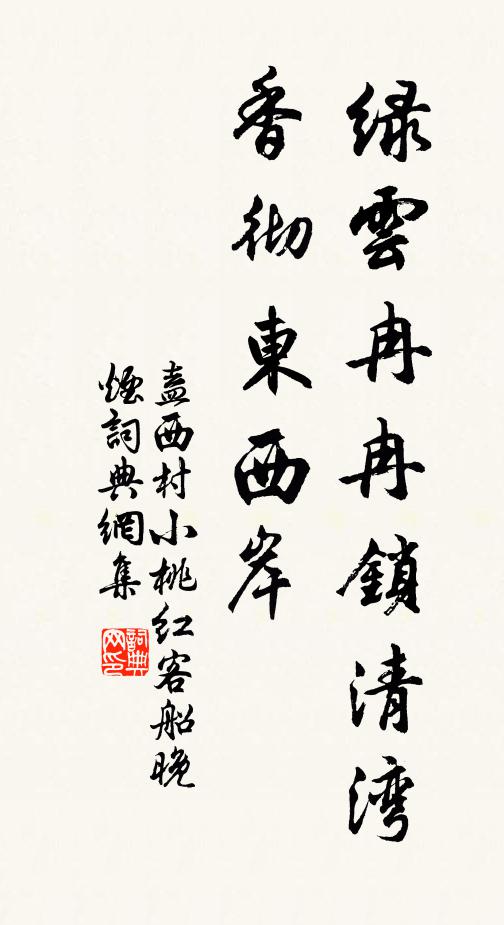 綠雲冉冉鎖清灣
香彻東西岸
盍西村小桃红客船晚
煙詞典網集
詞典网印